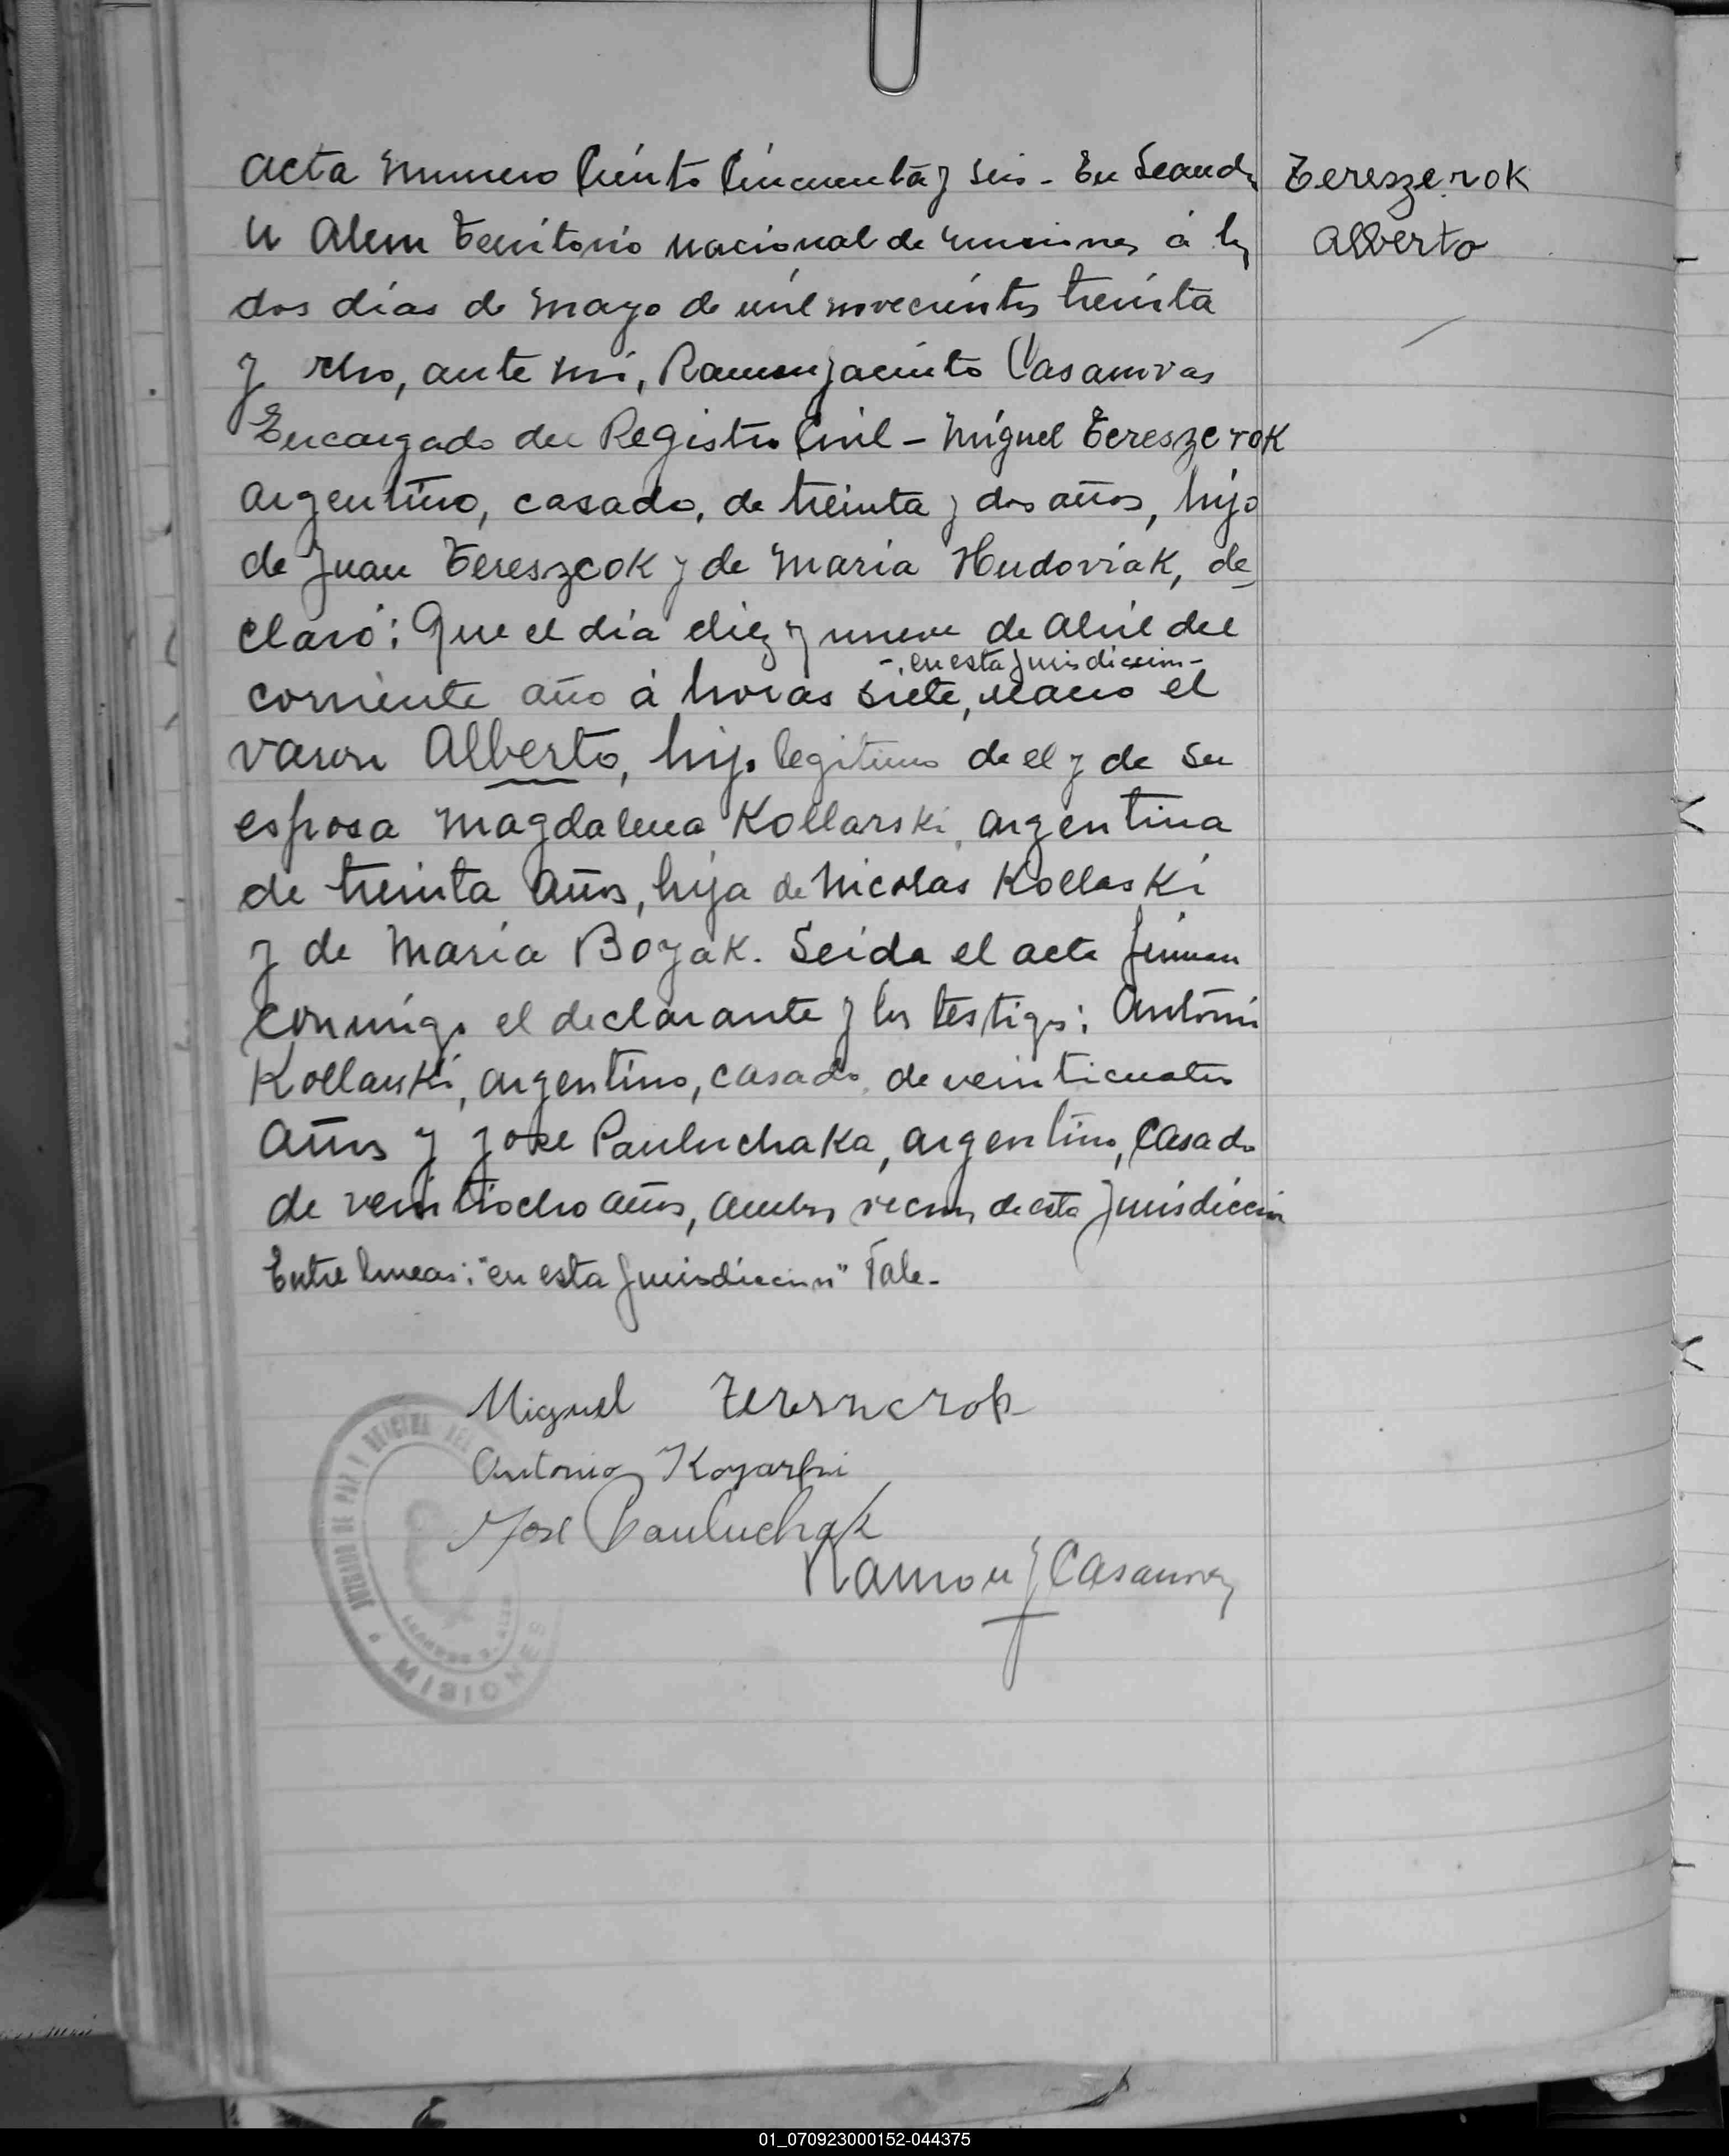 Acta numero Ciento Cincuenta y seis - En Leandro
N Alem Territorio nacional de misiones á los
dos días de mayo de mil novecientos treinta
y ocho, ante mi, Ramon Jacinto Casanovas
Encargado del Registro Civil - Miguel Tereszcrok
argentino, casado, de treinta y dos años, hijo
de Juan Tereszcok y de Maria Hudoviak, de
claró: Que el día diez y nueve de Abril del
- en esta jurisdiccion -
corriente año á horas siete, nacio el
varon Alberto, hijo legitimo de el y de su
esposa Magdalena Kollarski, argentina
de treinta años, hija de Nicolás Kollaski
y de Maria Bozak. Leida el acta firman
conmigo el declarante y los testigos: Antonio
Kollarski, argentino, casado, de veinticuatro
años y Jose Pauluchaka, argentino, casado
de veintiocho años, ambos vecinos de esta jurisdiccion
Entre lineas: "en esta jurisdiccion" Vale.
Tereszerok
Alberto
Miguel Tereszcrok
Antonio Kozarski
Jose Pauluchak
Ramon J Casanovas
JUZGADO DE PAZ Y
MISIONES
01_070923000152-044375